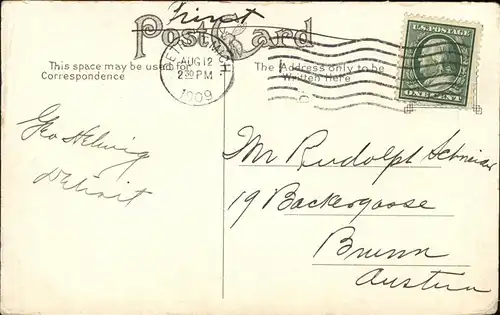 Print
Post Card
This space may be used for
Correspondence
The Address only to be
Written Here
DETROIT, MICH.
AUG 12
2 30 PM
1909
U.S. POSTAGE
ONE CENT
Geo Helwig
Detroit
Mr Rudolph Schneider
19 Backergasse
Brunn
Austria